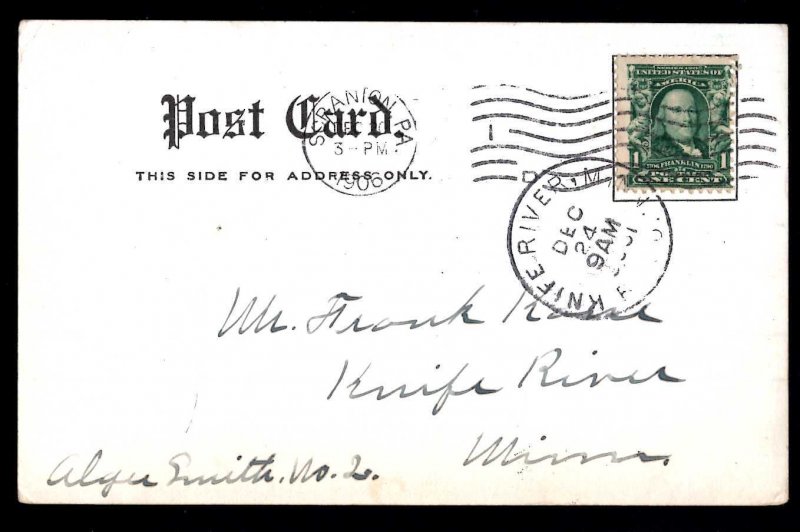 Post Card.
THIS SIDE FOR ADDRESS ONLY.
SCRANTON, PA.
DEC
3-PM
1906
1
SERIES 1902
UNITED STATES OF
AMERICA
1 FRANKLIN 1
POSTAGE
ONE CENT
KNIFE RIVER, MINN.
DEC
24
9AM
Mr. Frank Kane
Knife River
Minn.
Alger Smith. No. 2.